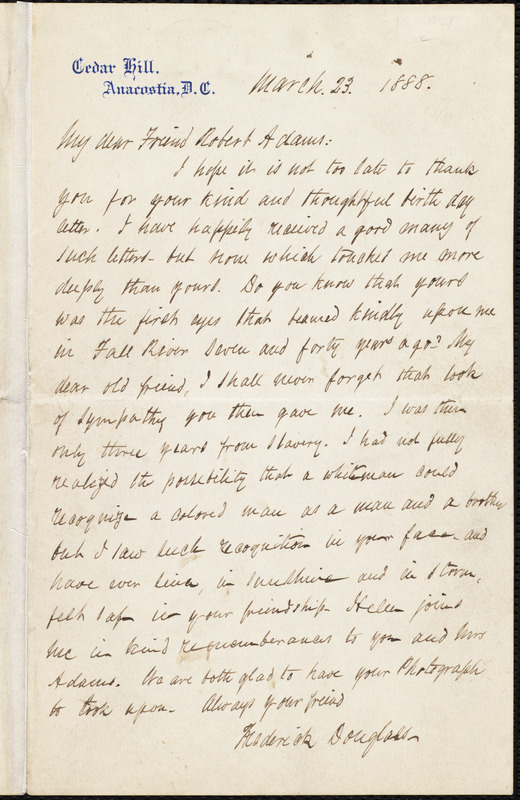 Cedar Hill,
Anacostia, D.C.
March. 23. 1888.
My dear Friend Robert Adams:
I hope it is not too late to thank
you for your kind and thoughtful birth day
letter. I have happily received a good many of
such letters - but none which touched me more
deeply than yours. Do you know that yours
was the first eyes that beamed kindly upon me
in Fall River Seven and forty years ago? My
dear old friend, I shall never forget that look
of sympathy you then gave me. I was then
only three years from slavery. I had not fully
realized the possibility that a white man could
recognize a colored man as a man and a brother
but I saw such recognition in your face - and
have ever since, in sunshine and in storm,
felt safe in your friendship. Helen joins
me in kind rememberances to you and Mrs
Adams. We are both glad to have your Photograph
to look upon. Always your friend
Frederick Douglass